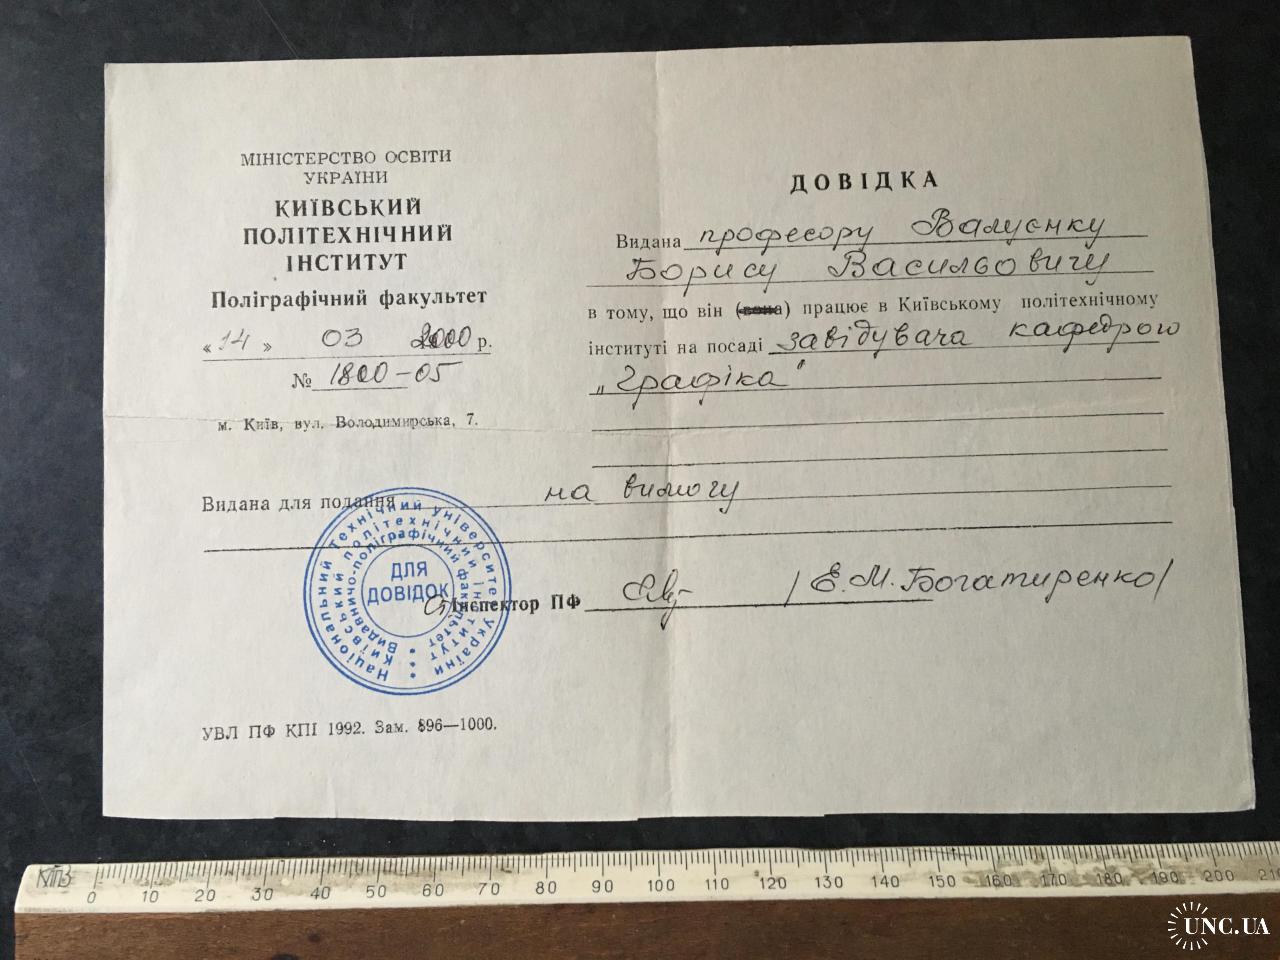 МІНІСТЕРСТВО ОСВІТИ
УКРАЇНИ
КИЇВСЬКИЙ
ПОЛІТЕХНІЧНИЙ
ІНСТИТУТ
Поліграфічний факультет
«14» 03 2000 р.
№ 1800-05
м. Київ, вул. Володимирська, 7.
ДОВІДКА
Видана професору Валуєнку
Борису Васильовичу
в тому, що він (вона) працює в Київському політехнічному
інституті на посаді завідувача кафедрою
„Графіка"
Видана для подання на вимогу
Інспектор ПФ /Є.М.Богатиренко/
Національний технічний університет України
Київський політехнічний інститут
Видавничо-поліграфічний факультет
ДЛЯ
ДОВІДОК
УВЛ ПФ КПІ 1992. Зам. 896—1000.
0 10 20 30 40 50 60 70 80 90 100 110 120 130 140 150 160 170 180 190 200 210
UNC.UA